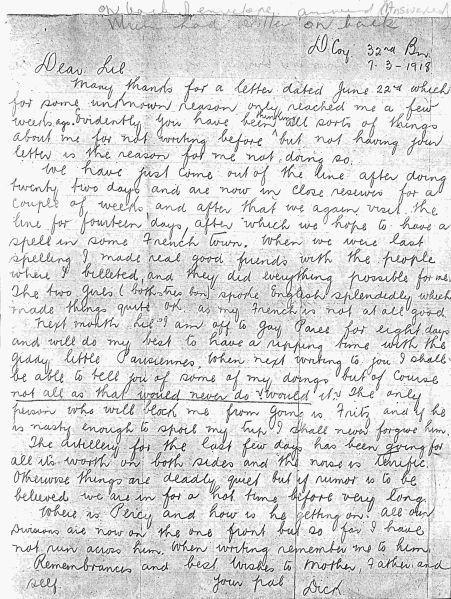 on back of envelope answered
When had letter on back
D Coy 32nd Bn.
7-3-1918
Dear Lil
Many thanks for a letter dated June 22nd which
for some unknown reason only reached me a few
weeks ago. Evidently you have been thinking all sorts of things
about me for not writing before but not having your
letter is the reason for me not doing so.
We have just come out of the line after doing
twenty two days and are now in close reserves for a
couple of weeks and after that we again visit the
line for fourteen days, after which we hope to have a
spell in some French town. When we were last
spelling I made real good friends with the people
where I billeted, and they did everything possible for me.
The two girls (both tres bon) spoke English splendedly which
made things quite OK. as my French is not at all good
Next month Lil I am off to gay Paree for eight days
and will do my best to have a ripping time with the
giddy little Parisiennes. When next writing to you I shall
be able to tell you of some of my doings but of course
not all as that would never do would it. The only
person who will block me from going is Fritz, and if he
is nasty enough to spoil my trip I shall never forgive him.
The artillery for the last few days has been going for
all its worth on both sides and the noise is terrific.
Otherwise things are deadly quiet but if rumor is to be
believed we are in for a hot time before very long.
Where is Percy and how is he getting on. All our
Divisions are now on the one front but so far I have
not run across him. When writing remember me to him
Remembrances and best wishes to Mother, Father and
self. Your pal Dick